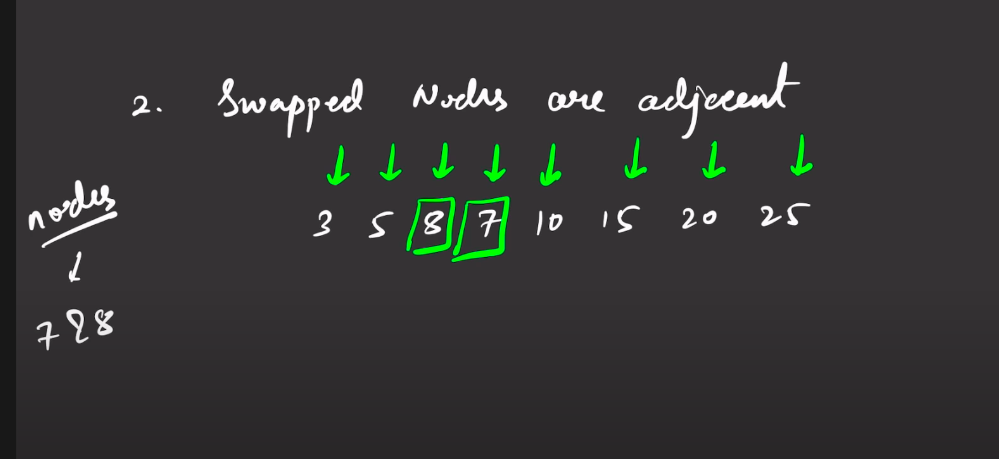 2. Swapped Nodes are adjacent
3 5 8 7 10 15 20 25
nodes
7 & 8